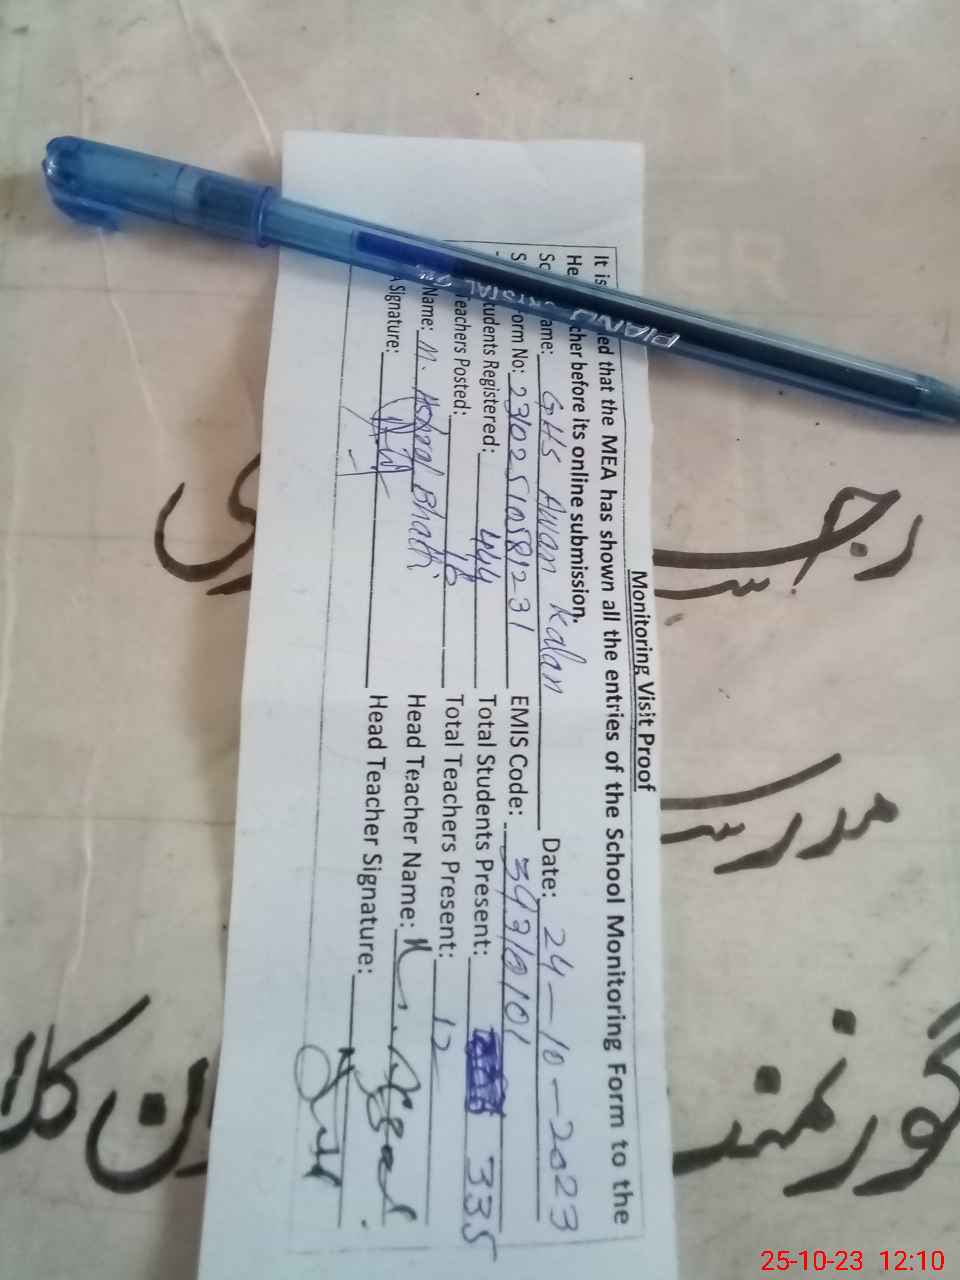 Monitoring Visit Proof
It is ed that the MEA has shown all the entries of the School Monitoring Form to the
He cher before its online submission.
Sc ame: GHS Awan Kalan Date: 24-10-2023
S orm No: EMIS Code:
tudents Registered: 444 Total Students Present: 335
eachers Posted: 16 Total Teachers Present: 12
Name: M. Asghar Bhatti Head Teacher Name: M. Afzal
A Signature: Head Teacher Signature:
PIANO CRYSTAL Gel
مدرسہ
گورنمنٹ
ن کلاں
25-10-23 12:10